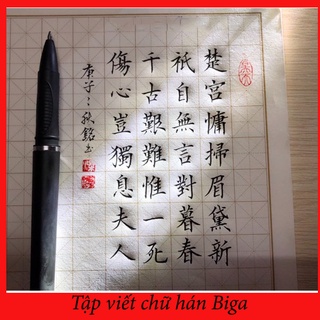 楚宮慵掃眉黛新
祇自無言對暮春
千古艱難惟一死
傷心豈獨息夫人
庚子 秋銘书
Tập viết chữ hán Biga